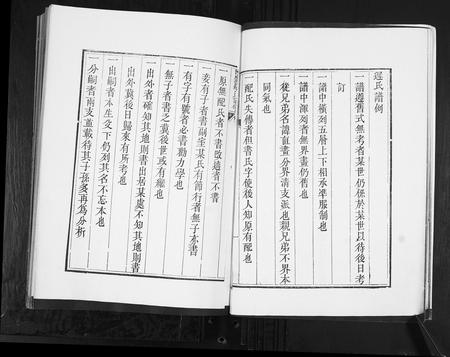 遲氏譜例
一譜遵舊式無考者某世仍係於某世以待後日考
訂
一譜中橫列五層上下相承準服制也
一譜中渾列者無界畫仍舊也
一從兄弟名諱直畫分界清支派也親兄弟不界本
同氣也
一配氏失傳者但書氏字使後人知原有配也
原無配氏者不書改適者不書
一妾有子者書副室某氏有節行者無子亦書
一有字有號者必書勸力學也
一無子者書之冀後世或有繼也
一出外者確知其地則書出居某處不知其地則書
出外冀後日歸來有所考也
一出嗣者本生支下仍列其名不忘本也
一分嗣者兩支並載待其子孫多再為分析